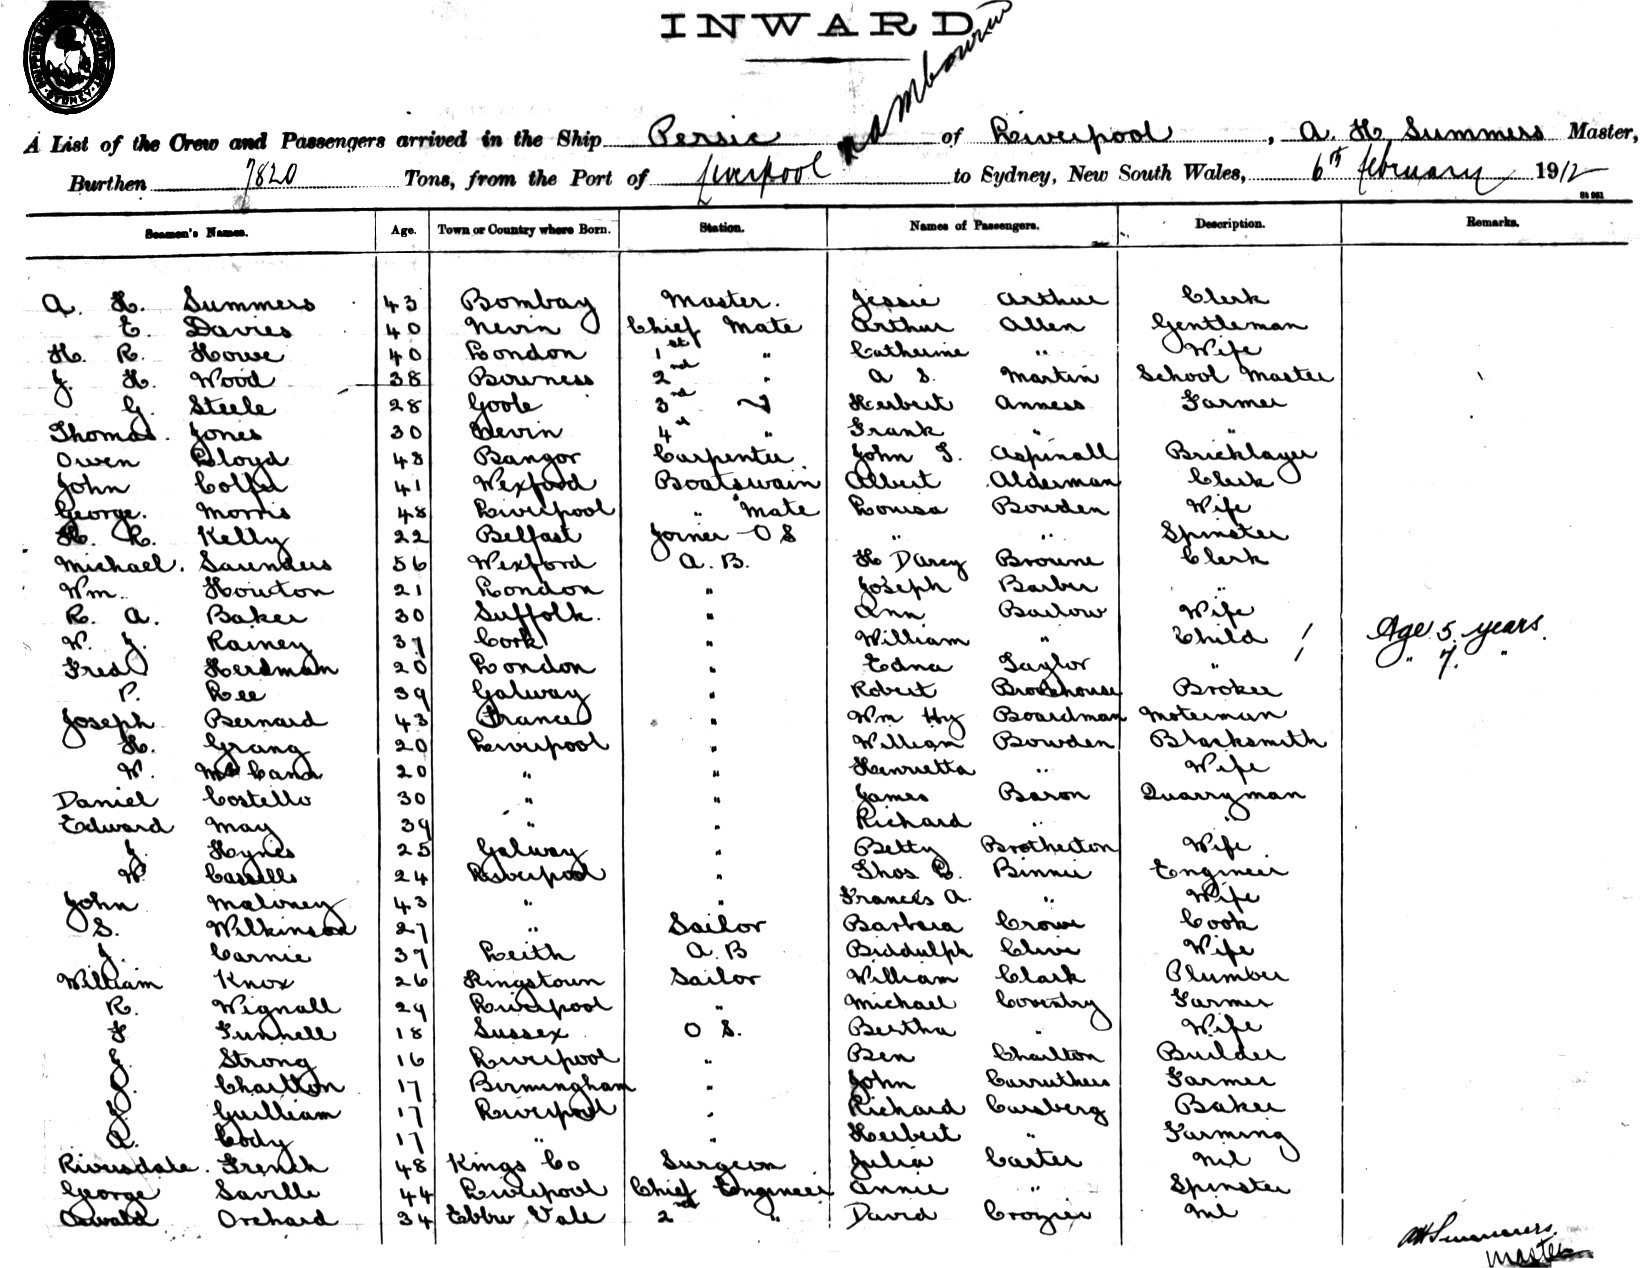 INWARD
A List of the Crew and Passengers arrived in the Ship Persic of Liverpool, A. H. Summers Master,
Burthen 7820 Tons, from the Port of Liverpool to Sydney, New South Wales, 6th February 1912
Seamen's Names. Age. Town or Country where Born. Station. Names of Passengers. Description. Remarks.
A. H. Summers 43 Bombay Master. Jessie Arthur Clerk
E. Davies 40 Nevin Chief Mate Arthur Allen Gentleman
H. R. Howe 40 London 1st " Catherine " Wife
J. H. Wood 38 Bowness 2nd " A S. Martin School Master
G. Steele 28 Goole 3rd " Herbert Anness Farmer
Thomas. Jones 30 Nevin 4th " Frank " "
Owen Lloyd 48 Bangor Carpenter John T. Aspinall Bricklayer
John Colfer 41 Wexford Boatswain Albert Alderman Clerk
George. Morris 48 Liverpool " Mate Louisa Bowden Wife
H. R. Kelly 22 Belfast Joiner O S " " Spinster
Michael. Saunders 56 Wexford A. B. H Darcy Browne Clerk
Wm. Houston 21 London " Joseph Barber "
R. A. Baker 30 Suffolk. " Ann Barlow Wife
W. J. Rainey 37 Cork " William " Child / Age 5 years.
Fred Herdman 20 London " Edna Taylor " / " 7. "
P. Lee 39 Galway " Robert Brookhouse Broker
Joseph Bernard 43 France " Wm Hy Boardman Moterman
H. Grang 20 Liverpool " William Bowden Blacksmith
W. McCann 20 " " Henrietta " Wife
Daniel Costello 30 " " James Baron Quarryman
Edward May 39 " " Richard " "
J. Hynes 25 Galway " Betty Brotherton Wife
W. Cassells 24 Liverpool " Thos C. Binnie Engineer
John Maloney 43 " " Frances A. " Wife
S. Wilkinson 27 " Sailor Barbara Crowe Cook
J. Carnie 37 Leith A. B Biddulph Clive Wife
William Knox 26 Kingstown Sailor William Clark Plumber
R. Wignall 29 Liverpool " Michael Coventry Farmer
F Funnell 18 Sussex O S. Bertha " Wife
J. Strong 16 Liverpool " Ben Charlton Builder
J. Charlton 17 Birmingham " John Carruthers Farmer
J. Guilliam 17 Liverpool " Richard Carsberg Baker
A. Cody 17 " " Herbert " Farming
Riversdale. French 48 Kings Co Surgeon Julia Carter Nil
George Saville 44 Liverpool Chief Engineer Annie " Spinster
Oswald Orchard 34 Ebbw Vale 2nd " David Crozier Nil
AHSummers
Master